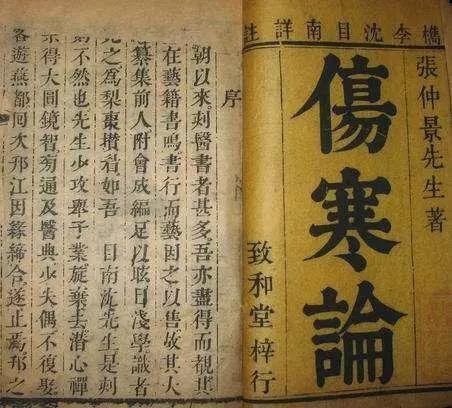 檇李沈目南詳註
張仲景先生著
傷寒論
致和堂梓行
序
朝以來刻醫書者甚多吾亦盡得而觀其
在藝籍書鳴書行而藝因之以售故其大
纂集前人附會成編足以眩目淺學識者
見之為梨棗攢眉如吾 目南沈先生是刻
則不然也先生少攻舉子業旋棄去潛心禪
宗得大圓鏡智旁通及醫典少失偶不復娶
客遊燕都囘次邗江因緣締合遂止焉邗之